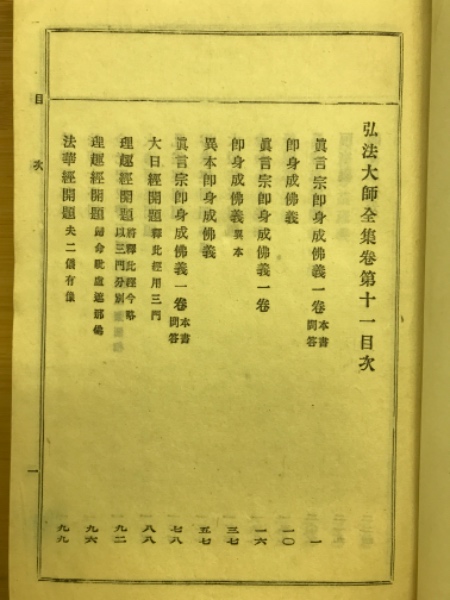 弘法大師全集卷第十一目次
眞言宗卽身成佛義一卷 本書問答 一
卽身成佛義 一〇
眞言宗卽身成佛義一卷 一六
卽身成佛義 異本 三七
異本卽身成佛義 五七
眞言宗卽身成佛義一卷 本書問答 七八
大日經開題 釋此經用三門 八八
理趣經開題 將釋此經今略以三門分別 九二
理趣經開題 歸命毗盧遮那佛 九六
法華經開題 夫二儀有像 九九
目次 一